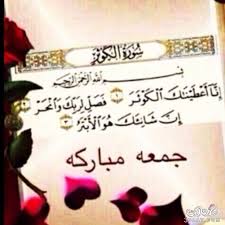 سُورَةُ الكَوْثَرِ
بِسْمِ اللَّهِ الرَّحْمَٰنِ الرَّحِيمِ
إِنَّا أَعْطَيْنَاكَ الْكَوْثَرَ ۝١ فَصَلِّ لِرَبِّكَ وَانْحَرْ ۝٢
إِنَّ شَانِئَكَ هُوَ الْأَبْتَرُ ۝٣
جمعه مباركه